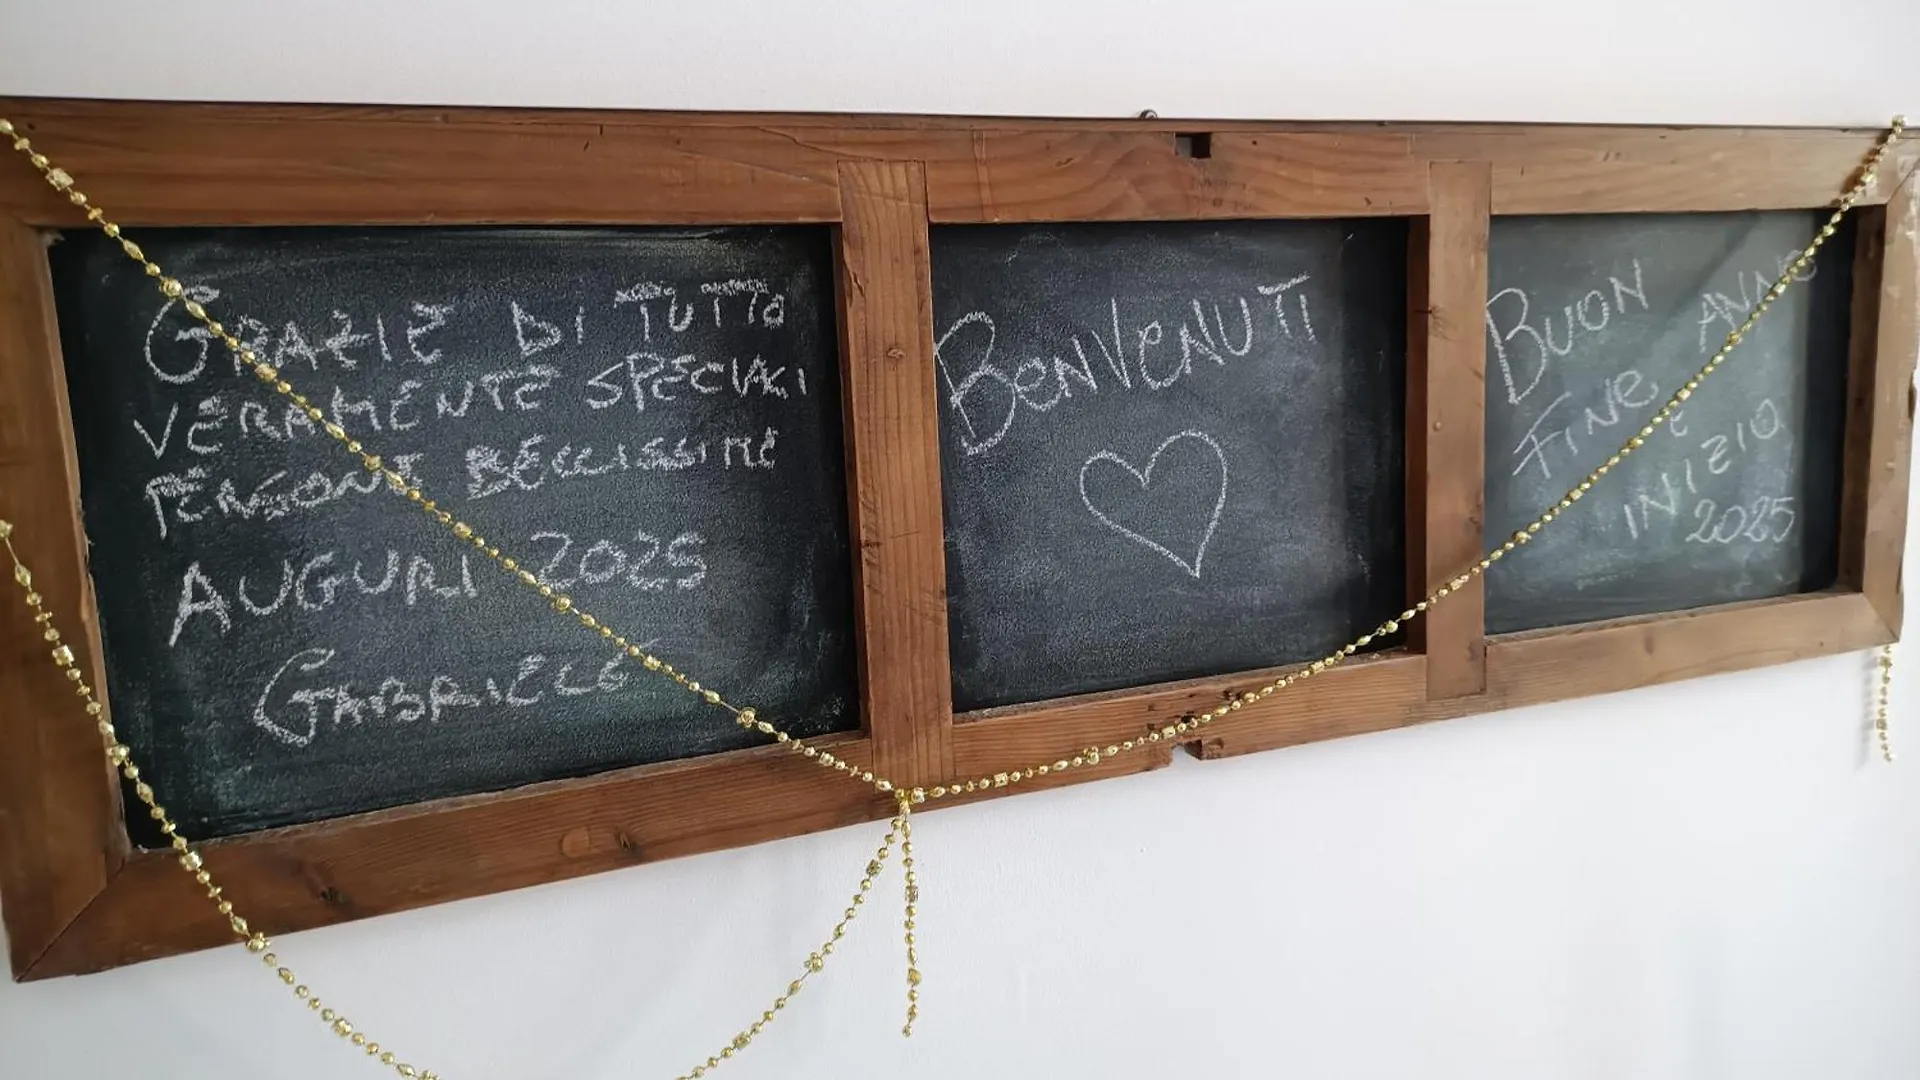 GRAZIE DI TUTTO
VERAMENTE SPECIALI
PERSONE BELLISSIME
AUGURI 2025
GABRIELE
BENVENUTI
BUON ANNO
FINE E
INIZIO
2025